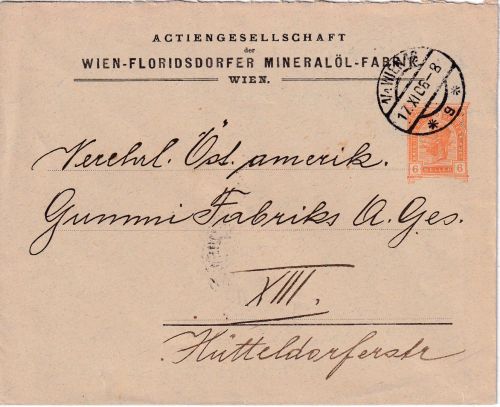 ACTIENGESELLSCHAFT
der
WIEN-FLORIDSDORFER MINERALÖL-FABRIK
WIEN.
17.XI.06-8
6 6
HELLER
Verehrl. Öst. amerik.
Gummi Fabriks A. Ges.
XIII.
Hütteldorferstr